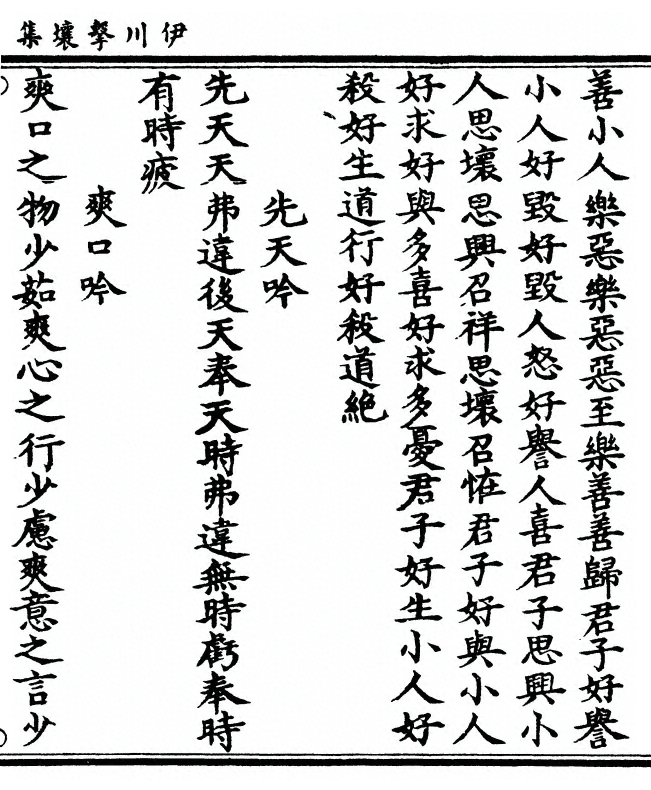 伊川擊壤集
善小人樂惡樂惡惡至樂善善歸君子好譽
小人好毀好毀人怒好譽人喜君子思興小
人思壞思興召祥思壞召恠君子好與小人
好求好與多喜好求多憂君子好生小人好
殺好生道行好殺道絶
先天吟
先天天弗違後天奉天時弗違無時虧奉時
有時疲
爽口吟
爽口之物少茹爽心之行少慮爽意之言少